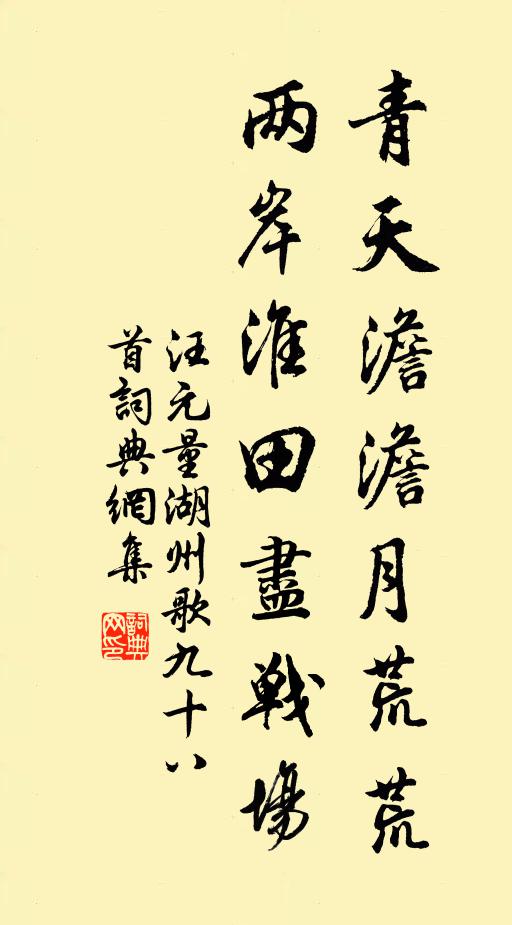 青天澹澹月荒荒
两岸淮田盡戰場
汪元量湖州歌九十八
首詞典網集
詞典网印